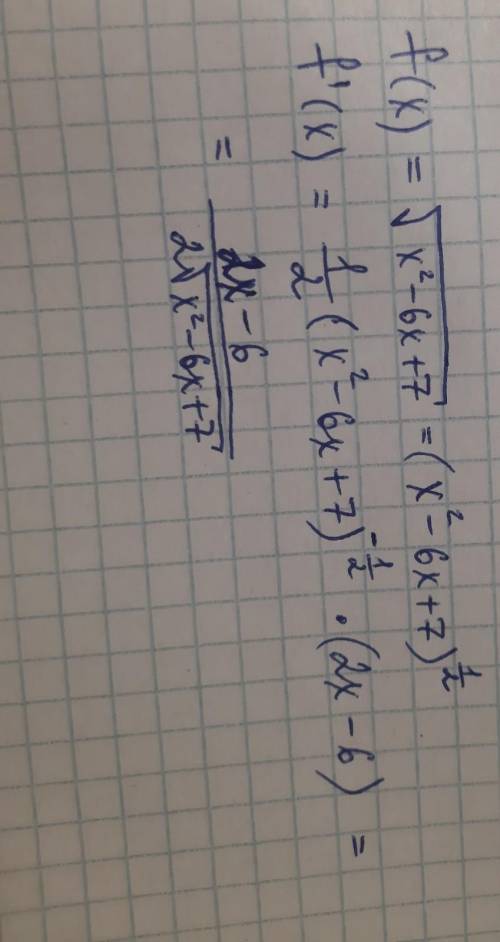 f(x) = √(x²-6x+7) = (x²-6x+7)^(1/2)
f'(x) = 1/2 (x²-6x+7)^(-1/2) · (2x-6) =
= (2x-6)/(2√(x²-6x+7))